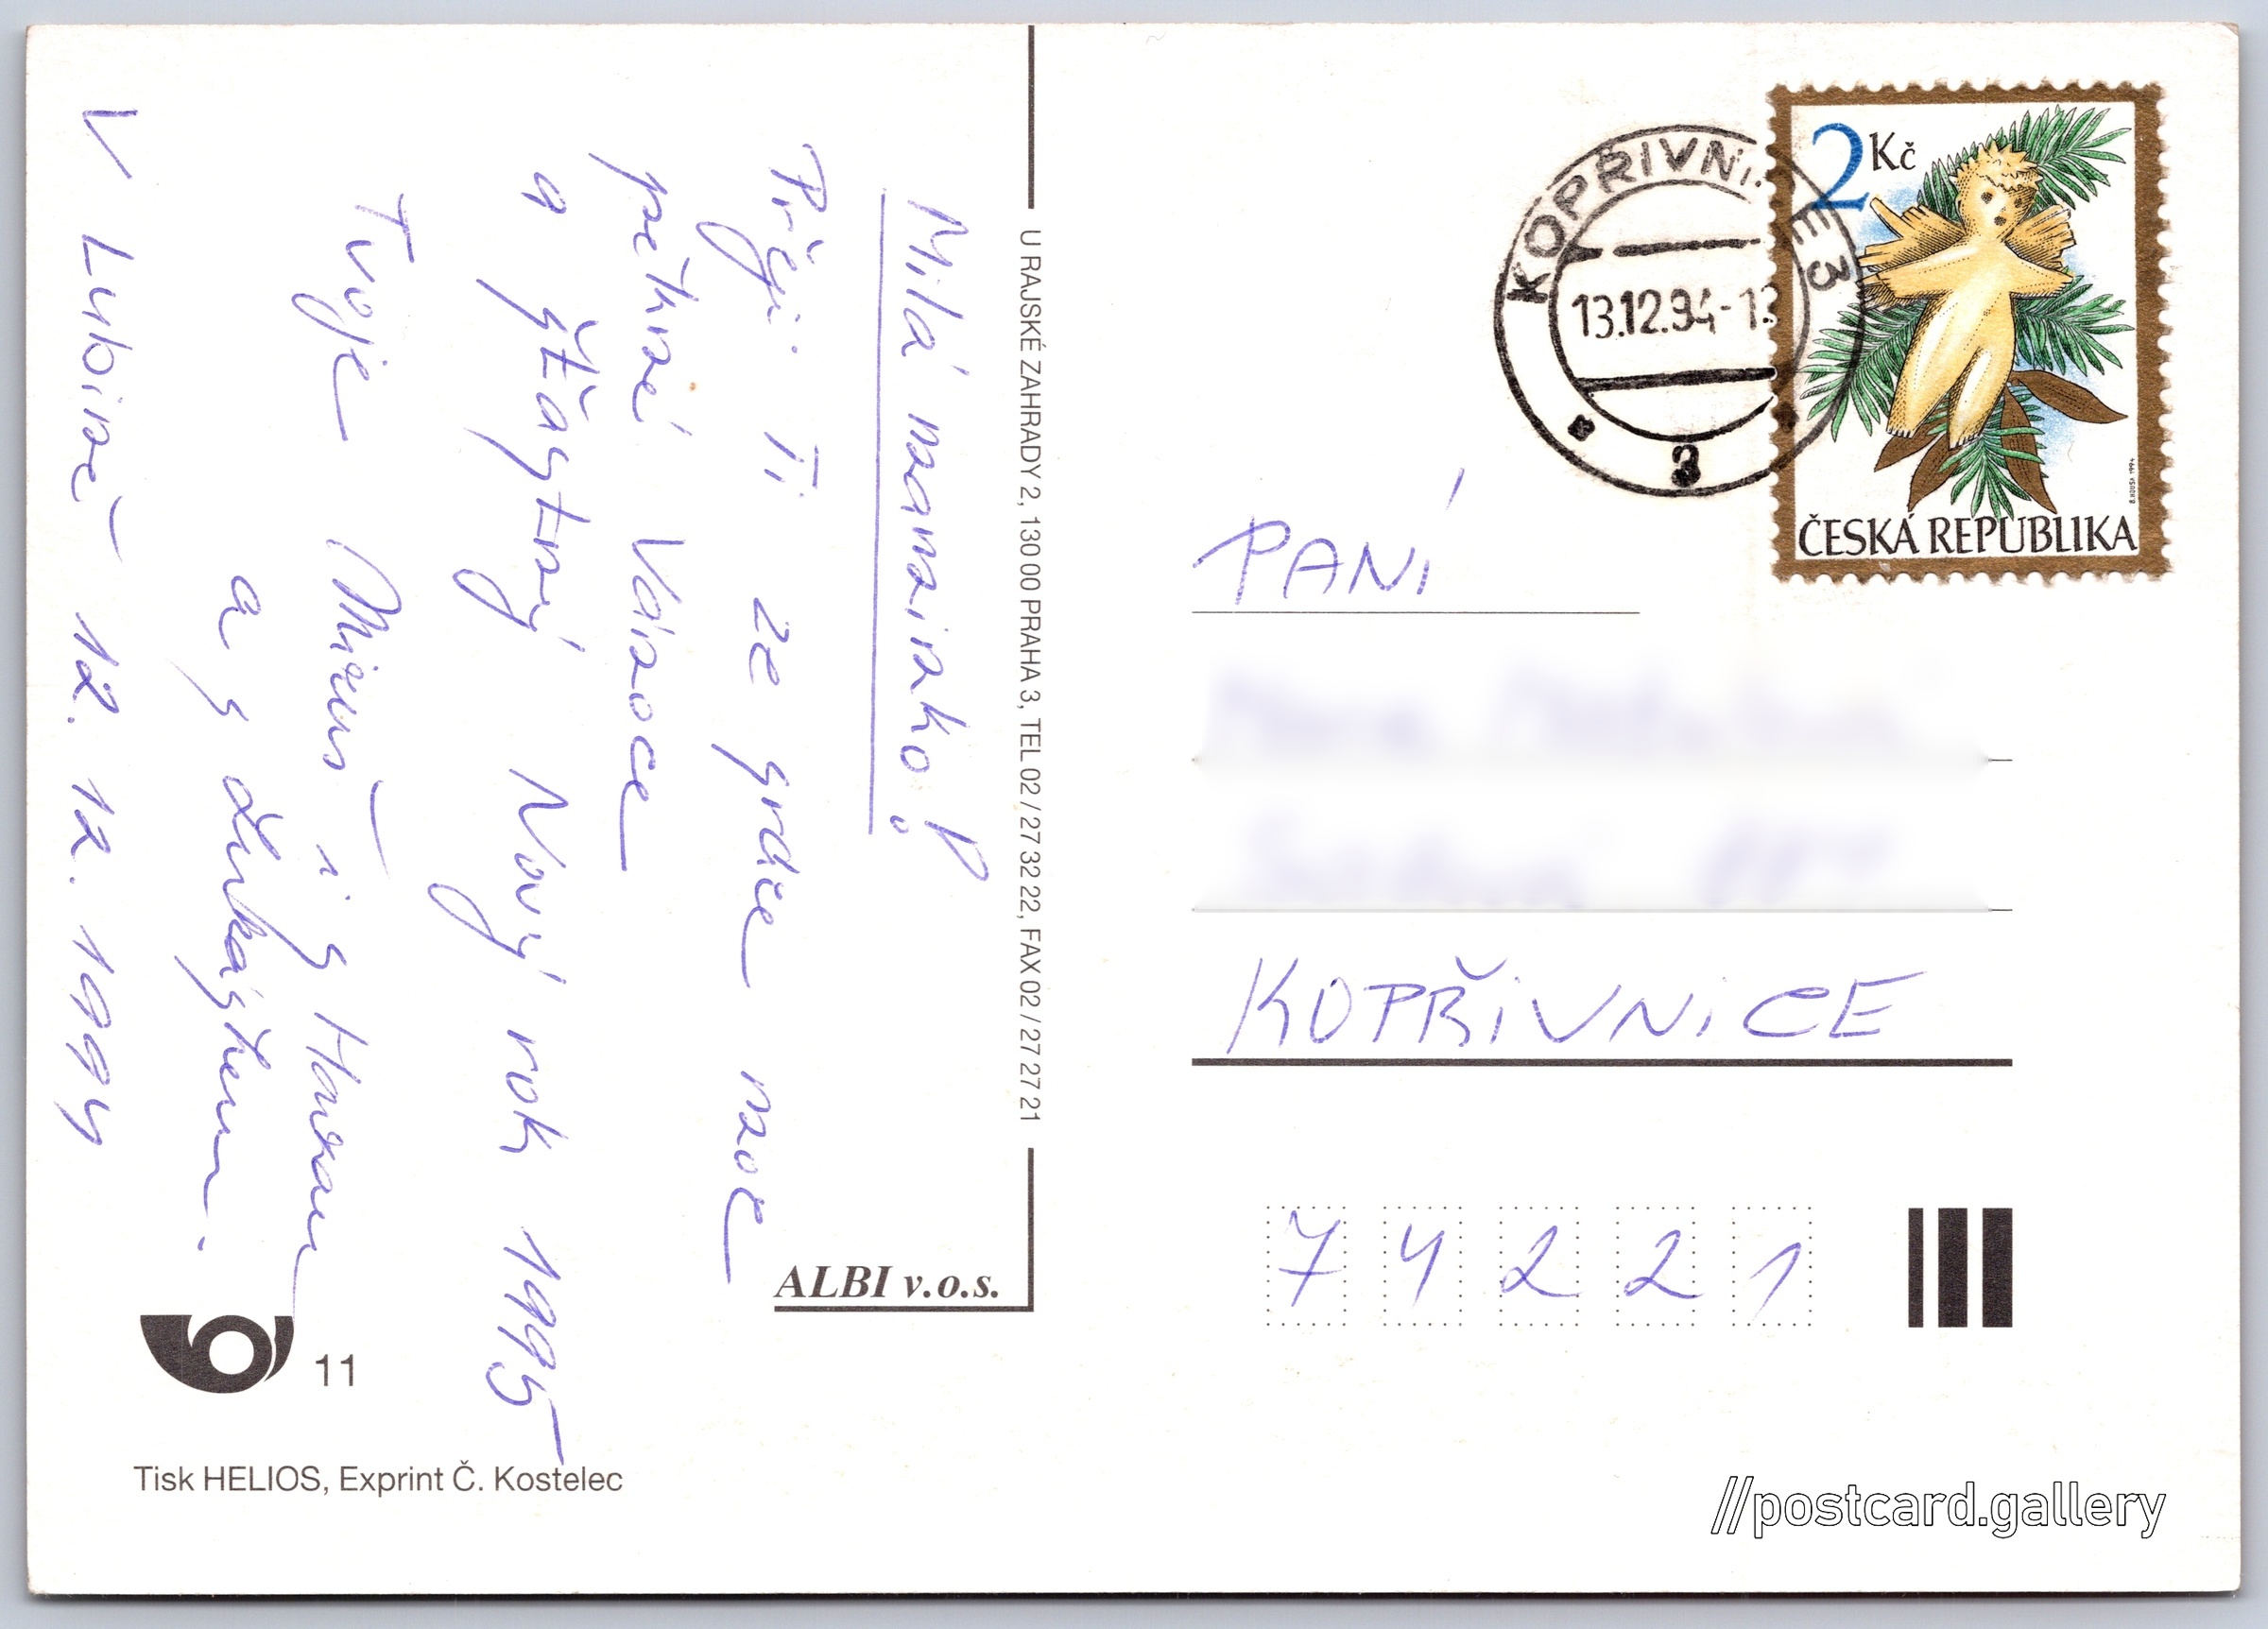 Milá maminko!
Přeji Ti ze srdce moc
pěkné Vánoce
a šťastný Nový rok 1995
Tvoje Miluš i s Honzou
a s Lukášem.
V Lubině 12. 12. 1994
U RAJSKÉ ZAHRADY 2, 130 00 PRAHA 3, TEL 02 / 27 32 22, FAX 02 / 27 27 21
ALBI v.o.s.
11
Tisk HELIOS, Exprint Č. Kostelec
KOPŘIVNICE 3
13.12.94-13
a
2 Kč
ČESKÁ REPUBLIKA
PANÍ
KOPŘIVNICE
74221
//postcard.gallery